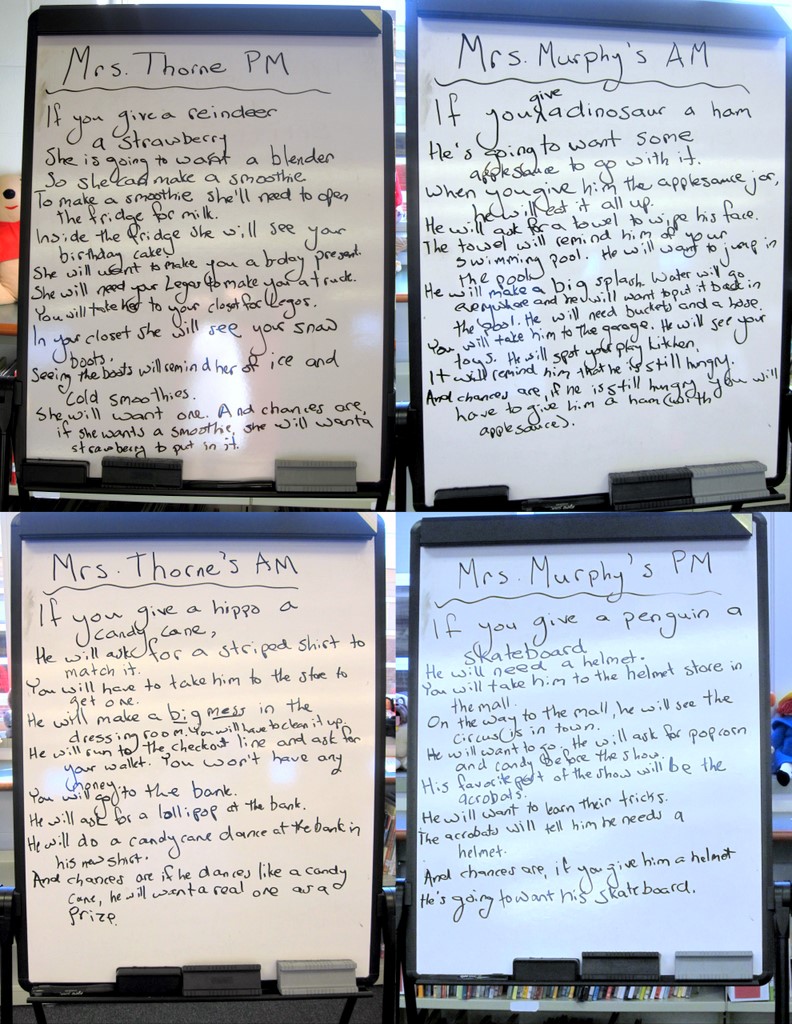 Mrs. Thorne PM
If you give a reindeer
a strawberry
She is going to want a blender
So she can make a smoothie
To make a smoothie she'll need to open
the fridge for milk.
Inside the fridge she will see your
birthday cake
She will want to make you a bday present.
She will need your Legos to make you a truck.
You will take her to your closet for Legos.
In your closet she will see your snow
boots.
Seeing the boots will remind her of ice and
cold smoothies.
She will want one. And chances are,
if she wants a smoothie, she will want a
strawberry to put in it.
Mrs. Murphy's AM
give
If you a dinosaur a ham
He's going to want some
applesauce to go with it.
When you give him the applesauce jar,
he will eat it all up.
He will ask for a towel to wipe his face.
The towel will remind him of your
swimming pool. He will want to jump in
the pool.
He will make a big splash. Water will go
everywhere and he will want to put it back in
the pool. He will need buckets and a hose.
You will take him to the garage. He will see your
toys. He will spot your play kitchen.
It will remind him that he is still hungry.
And chances are, if he is still hungry, you will
have to give him a ham (with
applesauce).
Mrs. Thorne's AM
If you give a hippo a
candy cane,
He will ask for a striped shirt to
match it.
You will have to take him to the store to
get one.
He will make a big mess in the
dressing room. You will have to clean it up.
He will run to the checkout line and ask for
your wallet. You won't have any
money.
You will go to the bank.
He will ask for a lollipop at the bank.
He will do a candy cane dance at the bank in
his new shirt.
And chances are if he dances like a candy
cane, he will want a real one as a
prize.
Mrs. Murphy's PM
If you give a penguin a
skateboard
He will need a helmet.
You will take him to the helmet store in
the mall.
On the way to the mall, he will see the
circus is in town.
He will want to go. He will ask for popcorn
and candy before the show.
His favorite part of the show will be the
acrobats.
He will want to learn their tricks.
The acrobats will tell him he needs a
helmet.
And chances are, if you give him a helmet
He's going to want his skateboard.